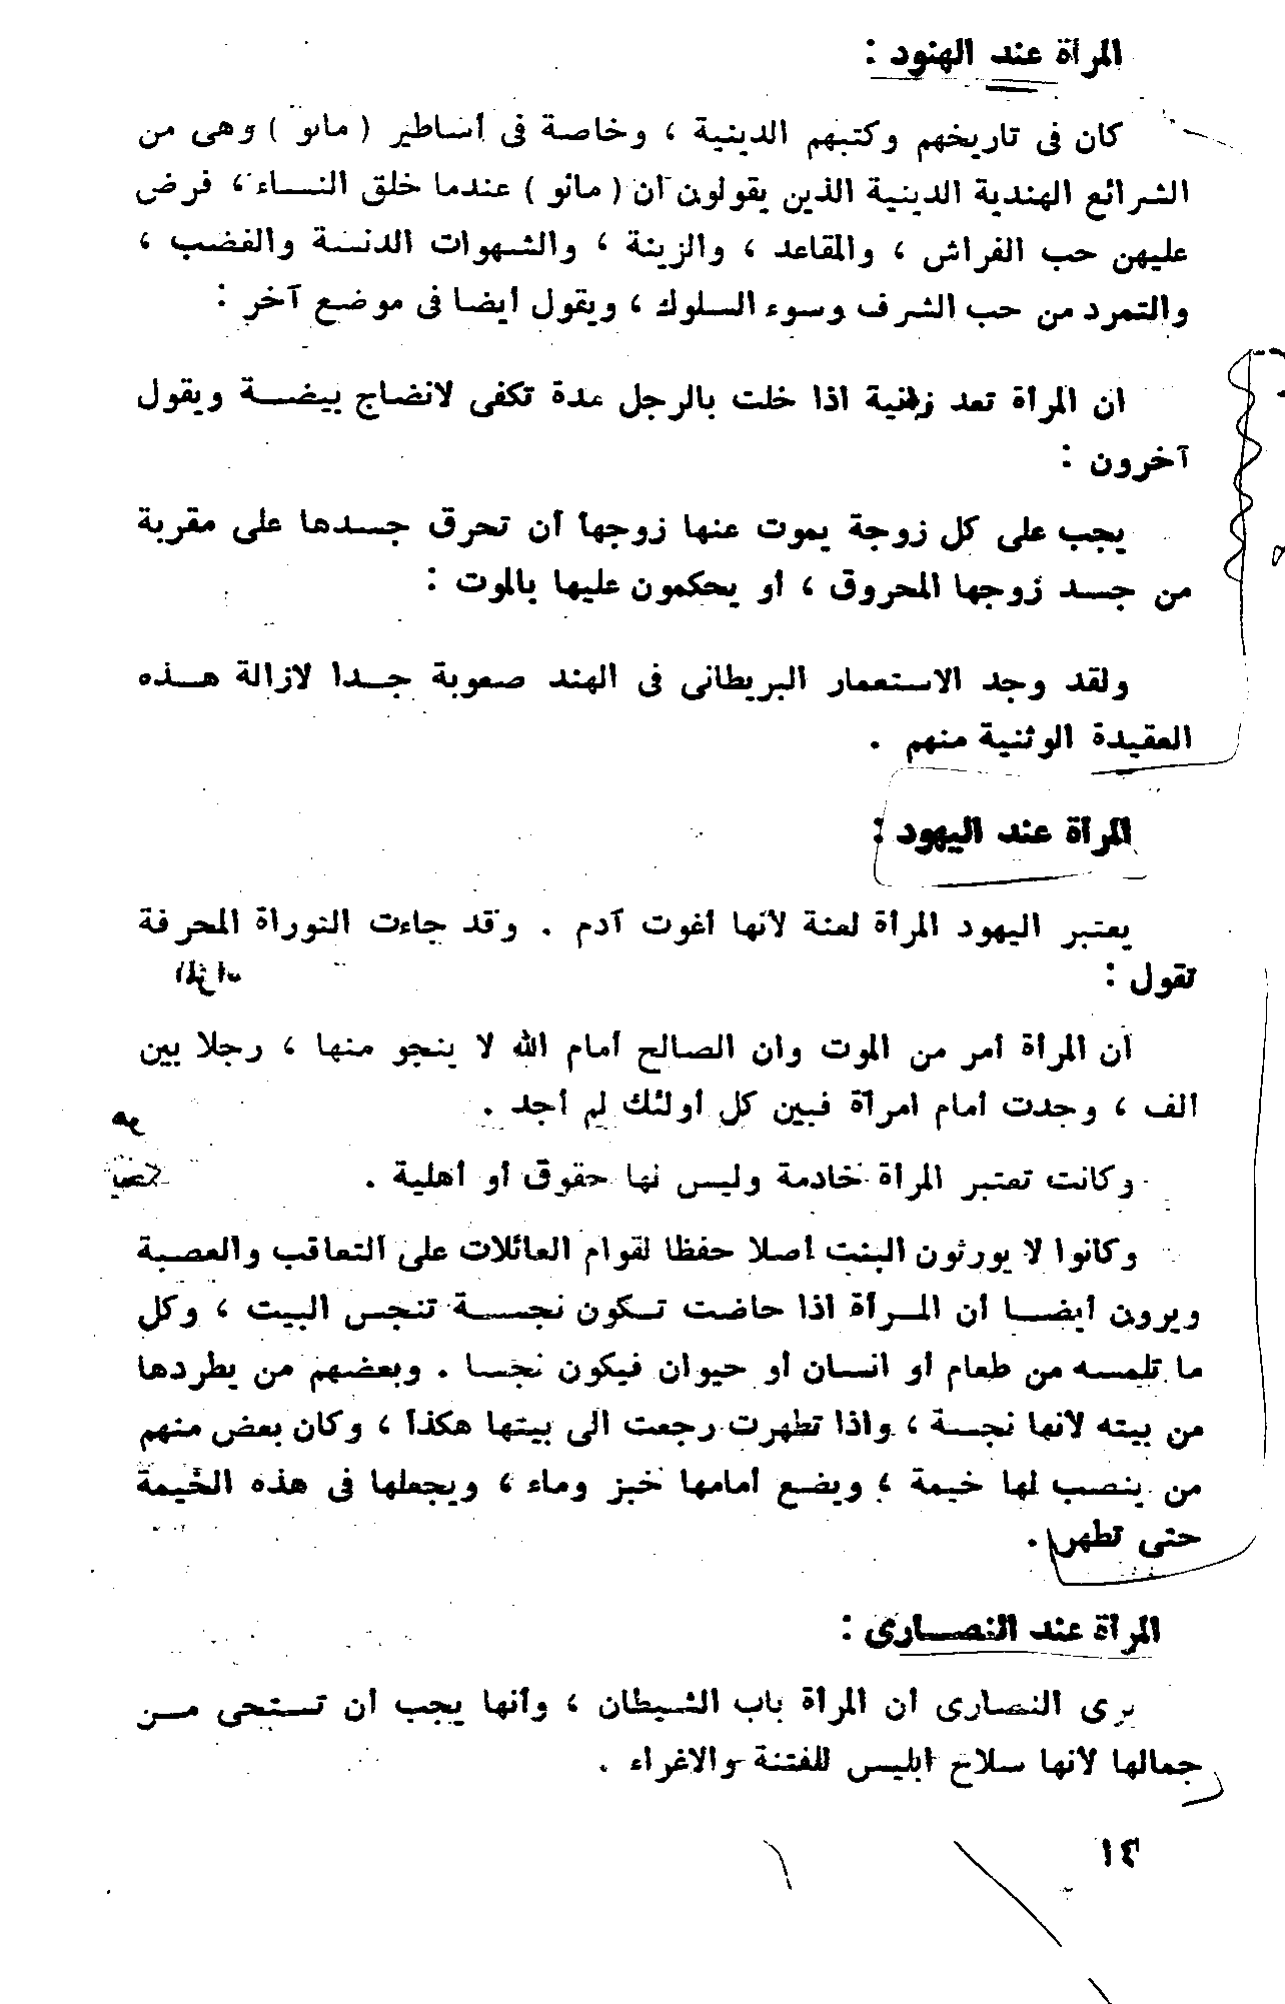 المرأة عند الهنود :
كان فى تاريخهم وكتبهم الدينية ، وخاصة فى أساطير ( مانو ) وهى من
الشرائع الهندية الدينية الذين يقولون أن ( مانو ) عندما خلق النساء ، فرض
عليهن حب الفراش ، والمقاعد ، والزينة ، والشهوات الدنسة والغضب ،
والتمرد من حب الشرف وسوء السلوك ، ويقول أيضا فى موضع آخر :
ان المرأة تعد زانية اذا خلت بالرجل مدة تكفى لانضاج بيضة ويقول
آخرون :
يجب على كل زوجة يموت عنها زوجها أن تحرق جسدها على مقربة
من جسد زوجها المحروق ، أو يحكمون عليها بالموت :
ولقد وجد الاستعمار البريطانى فى الهند صعوبة جدا لازالة هذه
العقيدة الوثنية منهم .
المرأة عند اليهود :
يعتبر اليهود المرأة لعنة لأنها أغوت آدم . وقد جاءت التوراة المحرفة
تقول :
أن المرأة أمر من الموت وان الصالح أمام الله لا ينجو منها ، رجلا بين
ألف ، وجدت أمام امرأة فبين كل أولئك لم أجد .
وكانت تعتبر المرأة خادمة وليس لها حقوق أو أهلية .
وكانوا لا يورثون البنت أصلا حفظا لقوام العائلات على التعاقب والعصبة
ويرون أيضا أن المرأة اذا حاضت تكون نجسة تنجس البيت ، وكل
ما تلمسه من طعام أو انسان أو حيوان فيكون نجسا . وبعضهم من يطردها
من بيته لانها نجسة ، واذا تطهرت رجعت الى بيتها هكذا ، وكان بعض منهم
من ينصب لها خيمة ، ويضع أمامها خبز وماء ، ويجعلها فى هذه الخيمة
حتى تطهر .
المرأة عند النصارى :
يرى النصارى أن المرأة باب الشيطان ، وأنها يجب أن تستحى من
جمالها لأنها سلاح ابليس للفتنة والاغراء .
١٤